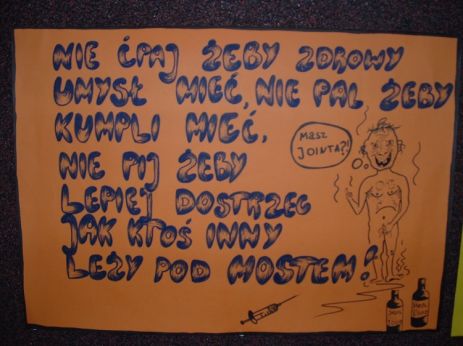 NIE ĆPAJ ŻEBY ZDROWY
UMYSŁ MIEĆ, NIE PAL ŻEBY
KUMPLI MIEĆ,
NIE PIJ ŻEBY
LEPIEJ DOSTRZEC
JAK KTOŚ INNY
LEŻY POD MOSTEM!
MASZ
JOINTA?!